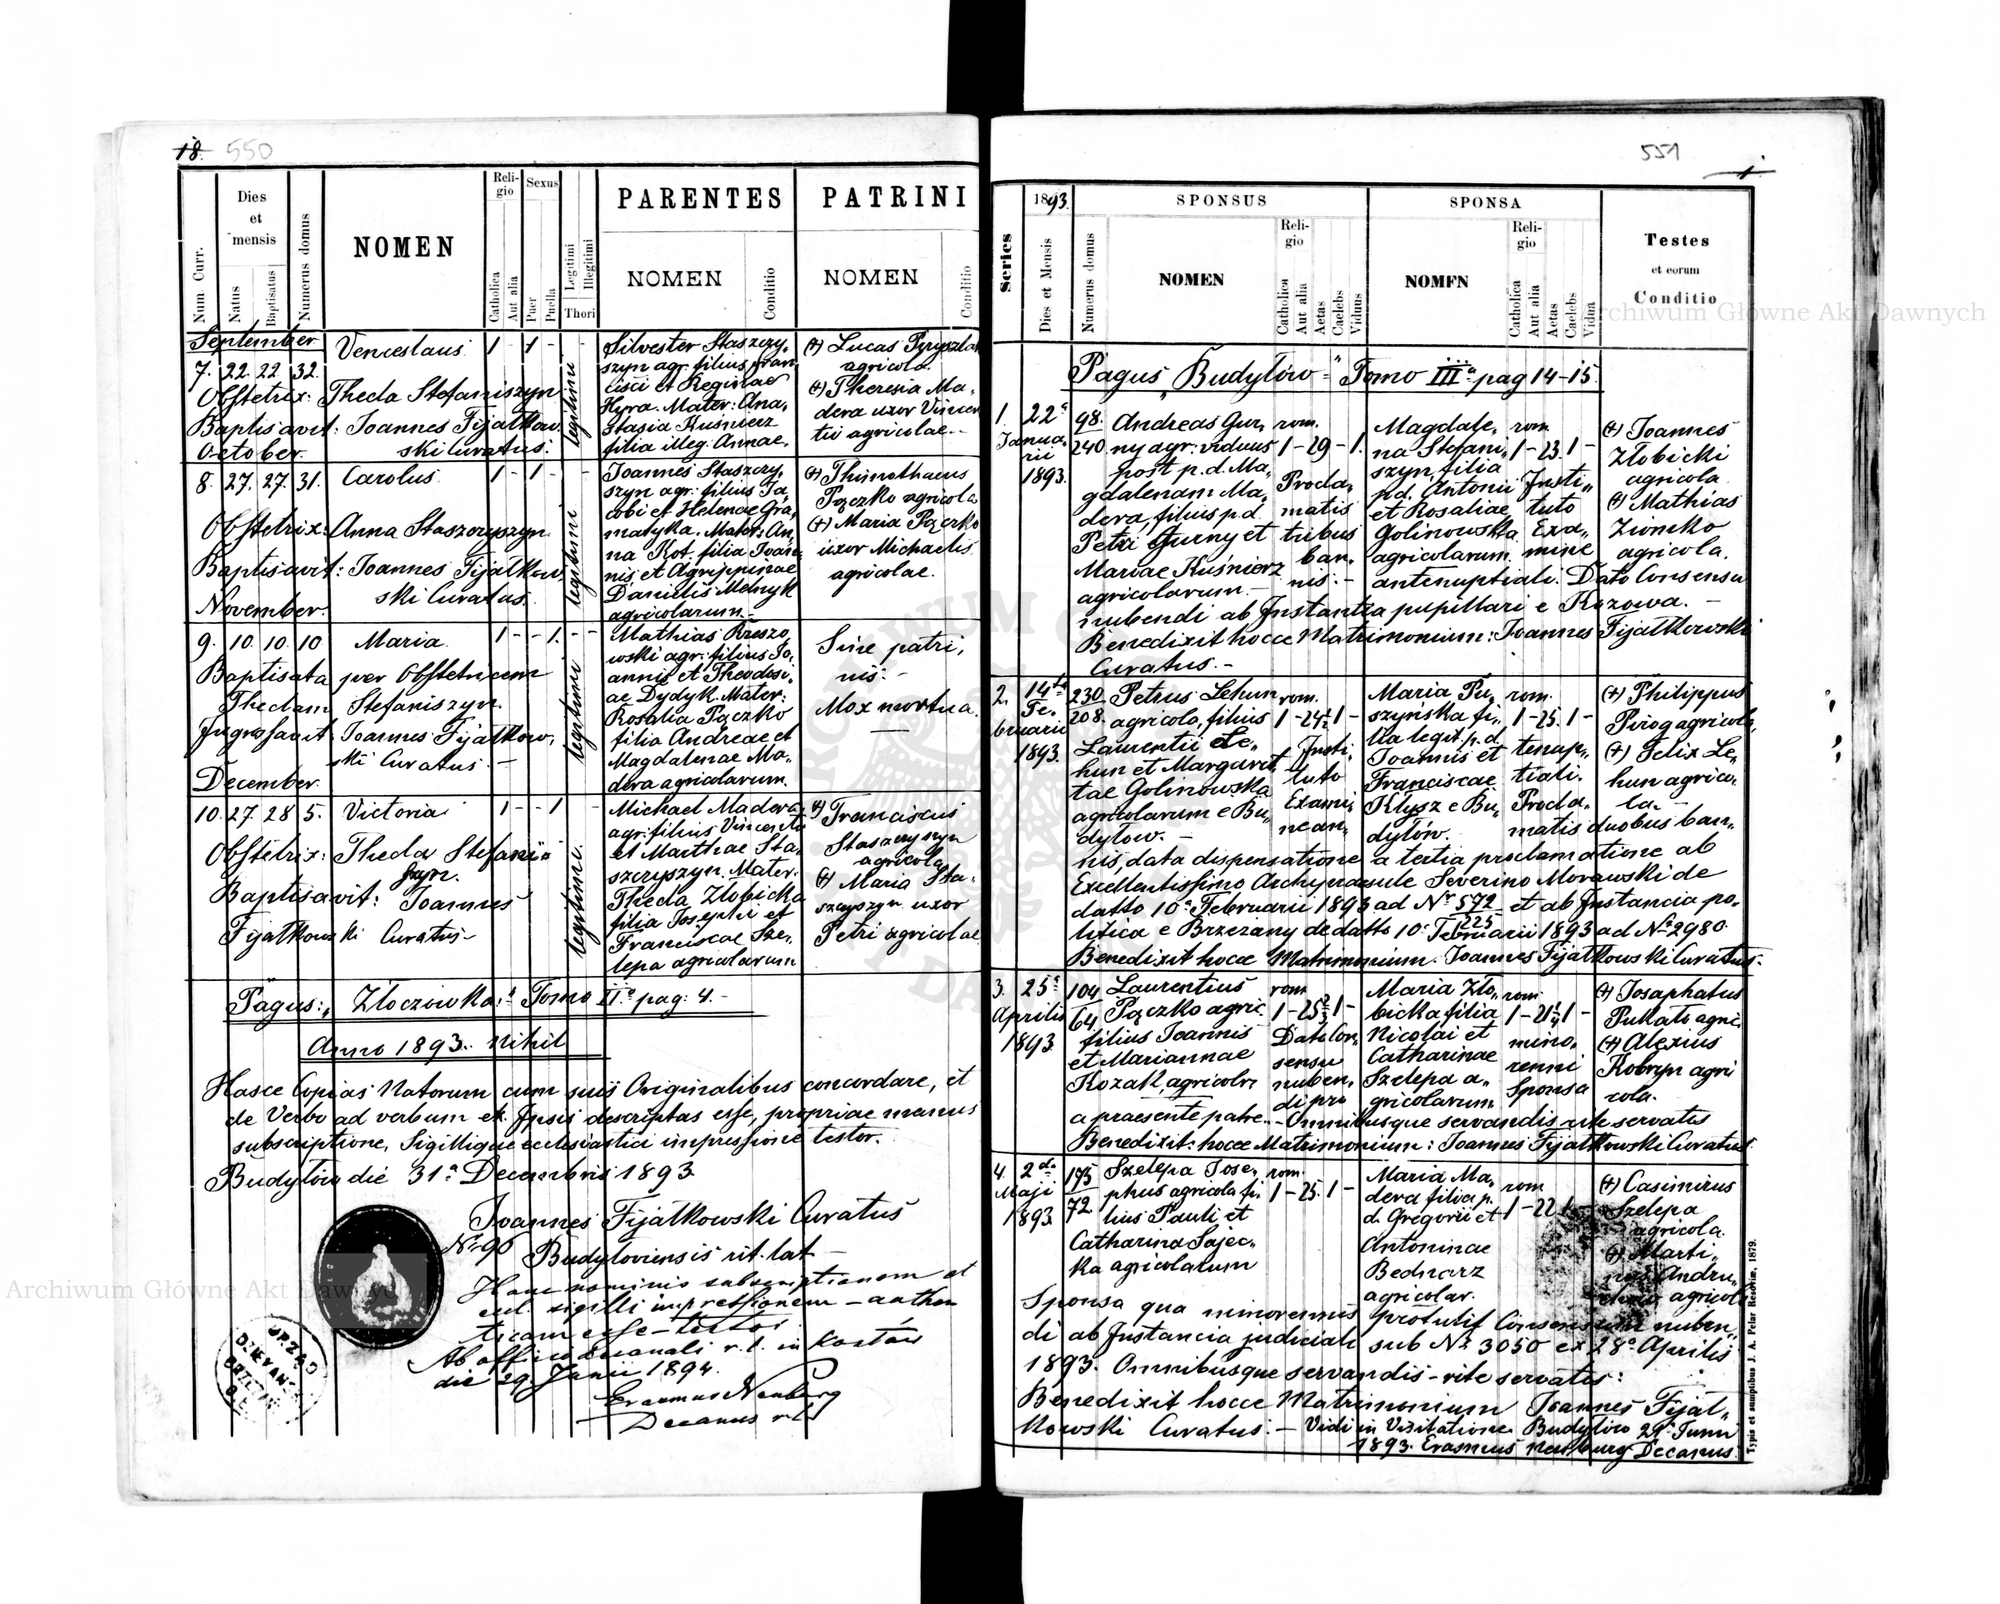 18. 550
Num. Curr.
Dies et mensis
Natus
Baptisatus
Numerus domus
NOMEN
Religio
Catholica
Aut alia
Sexus
Puer
Puella
Legitimi
Illegitimi
Thori
PARENTES
NOMEN
Conditio
PATRINI
NOMEN
Conditio
September
7. 22. 22. 32. Venceslaus 1 - 1 -
Obstetrix: Theda Stefaniszyn
Baptisavit: Joannes Fijałkow
ski Curatus.
legitimi
Silvester Staszczy,
szyn agr. filius Fran
cisci et Reginae
Hyra. Mater: Ana,
stasia Kuśnierz
filia illeg. Annae.
(+) Lucas Pryszlak
agricola.
(+) Theresia Ma,
dera uxor Vincen
tii agricolae.
October.
8. 27. 27. 31. Carolus 1 - 1 -
Obstetrix: Anna Staszczyszyn.
Baptisavit: Joannes Fijałkow
ski Curatus.
legitimi
Joannes Staszczy,
szyn agr. filius Ja,
cobi et Helenae Gra,
matyka. Mater: An,
na Kot filia Joan,
nis et Agrippinae
Danielis Melnyk
agricolarum.
(+) Thimothaeus
Pączko agricola
(+) Maria Pączko
uxor Michaelis
agricolae.
November.
9. 10. 10. 10 Maria 1 - - 1. - -
Baptisata per Obstetricem
Thedam Stefaniszyn.
Ingrossavit: Joannes Fijałkow,
ski Curatus.
legitimi
Mathias Rzeszo,
wski agr. filius Jo,
annis et Theodosi,
ae Dydyk. Mater:
Rosalia Pączko
filia Andreae et
Magdalenae Ma,
dera agricolarum.
Sine patri,
nis.
Mox mortua.
December.
10. 27. 28 5. Victoria 1 - - 1 -
Obstetrix: Theda Stefani=
szyn.
Baptisavit: Joannes
Fijałkowski Curatus
legitimi
Michael Madera
agr. filius Vincentii
et Marthae Sta,
szczyszyn. Mater:
Theda Złobicka
filia Josephi et
Franciscae Sze,
lepa agricolarum
(+) Franciscus
Staszczyszyn
agricola
(+) Maria Sta,
szczyszyn uxor
Petri agricolae
Pagus: „Złoczówka" Tomo II. pag: 4.
Anno 1893. nihil
Hasce Copias Natorum cum suis Originalibus concordare, et
de Verbo ad verbum ex Ipsis descriptas esse, propriae manus
subscriptione, Sigillique ecclesiastici impressione testor.
Budylów die 31a Decembris 1893
Joannes Fijałkowski Curatus
Budyloviensis rit. lat.
No 96
Hanc nominis subscriptionem et
sigilli impressionem authen
ticam esse testor
Ab officio Decanali r. l. in
die 29. Junii 1894.
Erasmus Neuburg
Decanus r. l.
URZĄD
551
1.
Series
1893.
Dies et Mensis
SPONSUS
Numerus domus
NOMEN
Religio
Catholica
Aut alia
Aetas
Caelebs
Viduus
SPONSA
NOMEN
Religio
Catholica
Aut alia
Aetas
Caelebs
Vidua
Testes
et eorum
Conditio
Pagus „Budylów" Tomo III. pag 14-15.
1. 22a
Janua,
rii
1893.
98.
240
Andreas Gur,
ny agr. viduus
post p. d. Ma,
gdalenam Ma,
dera, filius p. d.
Petri Gurny et
Mariae Kuśnierz
agricolarum
rom.
1 - 29 - 1.
Procla,
matis
tribus
ban,
nis.
Magdale,
na Stefani,
szyn, filia
p. d. Antonii
et Rosaliae
Golinowska
agricolarum
rom
1 - 23. 1 -
Insti,
tuto
Exa,
mine
(+) Joannes
Złobicki
agricola
(+) Mathias
Ziomko
agricola.
antenuptiali. Dato Consensu
nubendi ab Instantia pupillari e Kozowa.
Benedixit hocce Matrimonium: Joannes Fijałkowski
Curatus.
2. 14ta
Fe,
bruarii
1893.
230
208.
Petrus Lehun
agricola, filius
Laurentii Le,
hun et Margari,
tae Golinowska
agricolarum e Bu,
dylow.
rom.
1 - 24½ 1 -
Insti,
tuto
Exami,
ne an,
Maria Pu,
szyńska fi,
lia legit. p. d.
Joannis et
Franciscae
Kłysz e Bu,
dylów.
rom.
1 - 25. 1 -
tenup,
tiali.
Procla,
matis duobus ban,
(+) Philippus
Pirog agricola,
(+) Felix Le,
hun agrico,
la.
nis, data dispensatione a tertia proclamatione ab
Excellentissimo Archipraesule Severino Morawski de
datto 10a Februarii 1893 ad No 592/225 et ab Instancia po,
litica e Brzezany de datto 10. Februarii 1893 ad No 2980.
Benedixit hocce Matrimonium. Joannes Fijałkowski Curatus.
3. 25a
Aprilis
1893
104
64
Laurentius
Pączko agric.
filius Joannis
et Mariannae
Kozak, agricolar
rom
Dato Con,
sensu
nuben,
di pro
Maria Zło,
bicka filia
Nicolai et
Catharinae
Szelepa a,
gricolarum
rom.
1 - 21¼ 1 -
mino,
renni
Sponsa
(+) Josaphatus
Pukało agric.
(+) Alexius
Kobryn agri
cola.
a praesente patre. - Omnibusque servandis rite servatis
Benedixit hocce Matrimonium: Joannes Fijałkowski Curatus.
4. 2da
Maji
1893.
175
72
Szelepa Jose,
phus agricola fi,
lius Pauli et
Catharina Sajec,
ka agricolarum
rom.
1 - 25. 1 -
Maria Ma,
dera filia p.
d. Gregorii et
Antoninae
Bednarz
agricolar.
rom
1 - 22 1 -
(+) Casimirus
Szelepa
agricola.
(+) Marti,
nus Andru,
agricola
Sponsa qua minorennis protulit Consensum nuben,
di ab Instancia judiciali sub No 3050 ex 28a Aprilis
1893. Omnibusque servandis - rite servatis:
Benedixit hocce Matrimonium Joannes Fijał,
kowski Curatus. - Vidi in Visitatione Budylów 29. Junii
1893. Erasmus Neuburg Decanus.
Typis et sumptibus J. A. Pelar Resoviae, 1879.
Archiwum Główne Akt Dawnych
Archiwum Główne Akt Dawnych